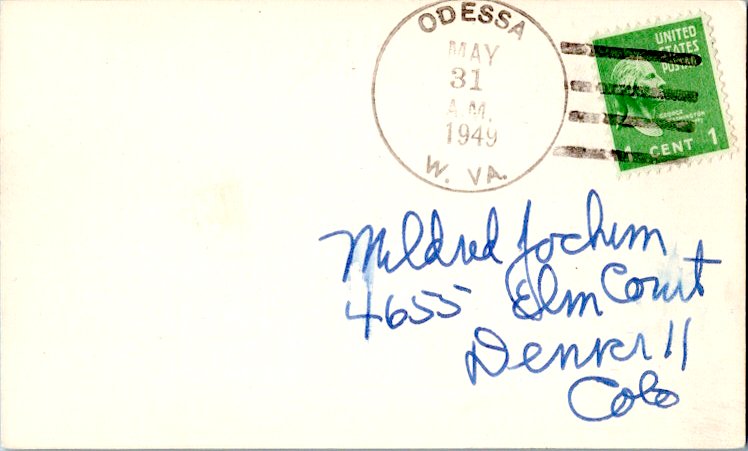 ODESSA
MAY
31
A.M.
1949
W. VA.
UNITED
STATES
POSTAGE
GEORGE
WASHINGTON
1 CENT 1
Mildred Jochem
4655 Elm Court
Denver 11
Colo